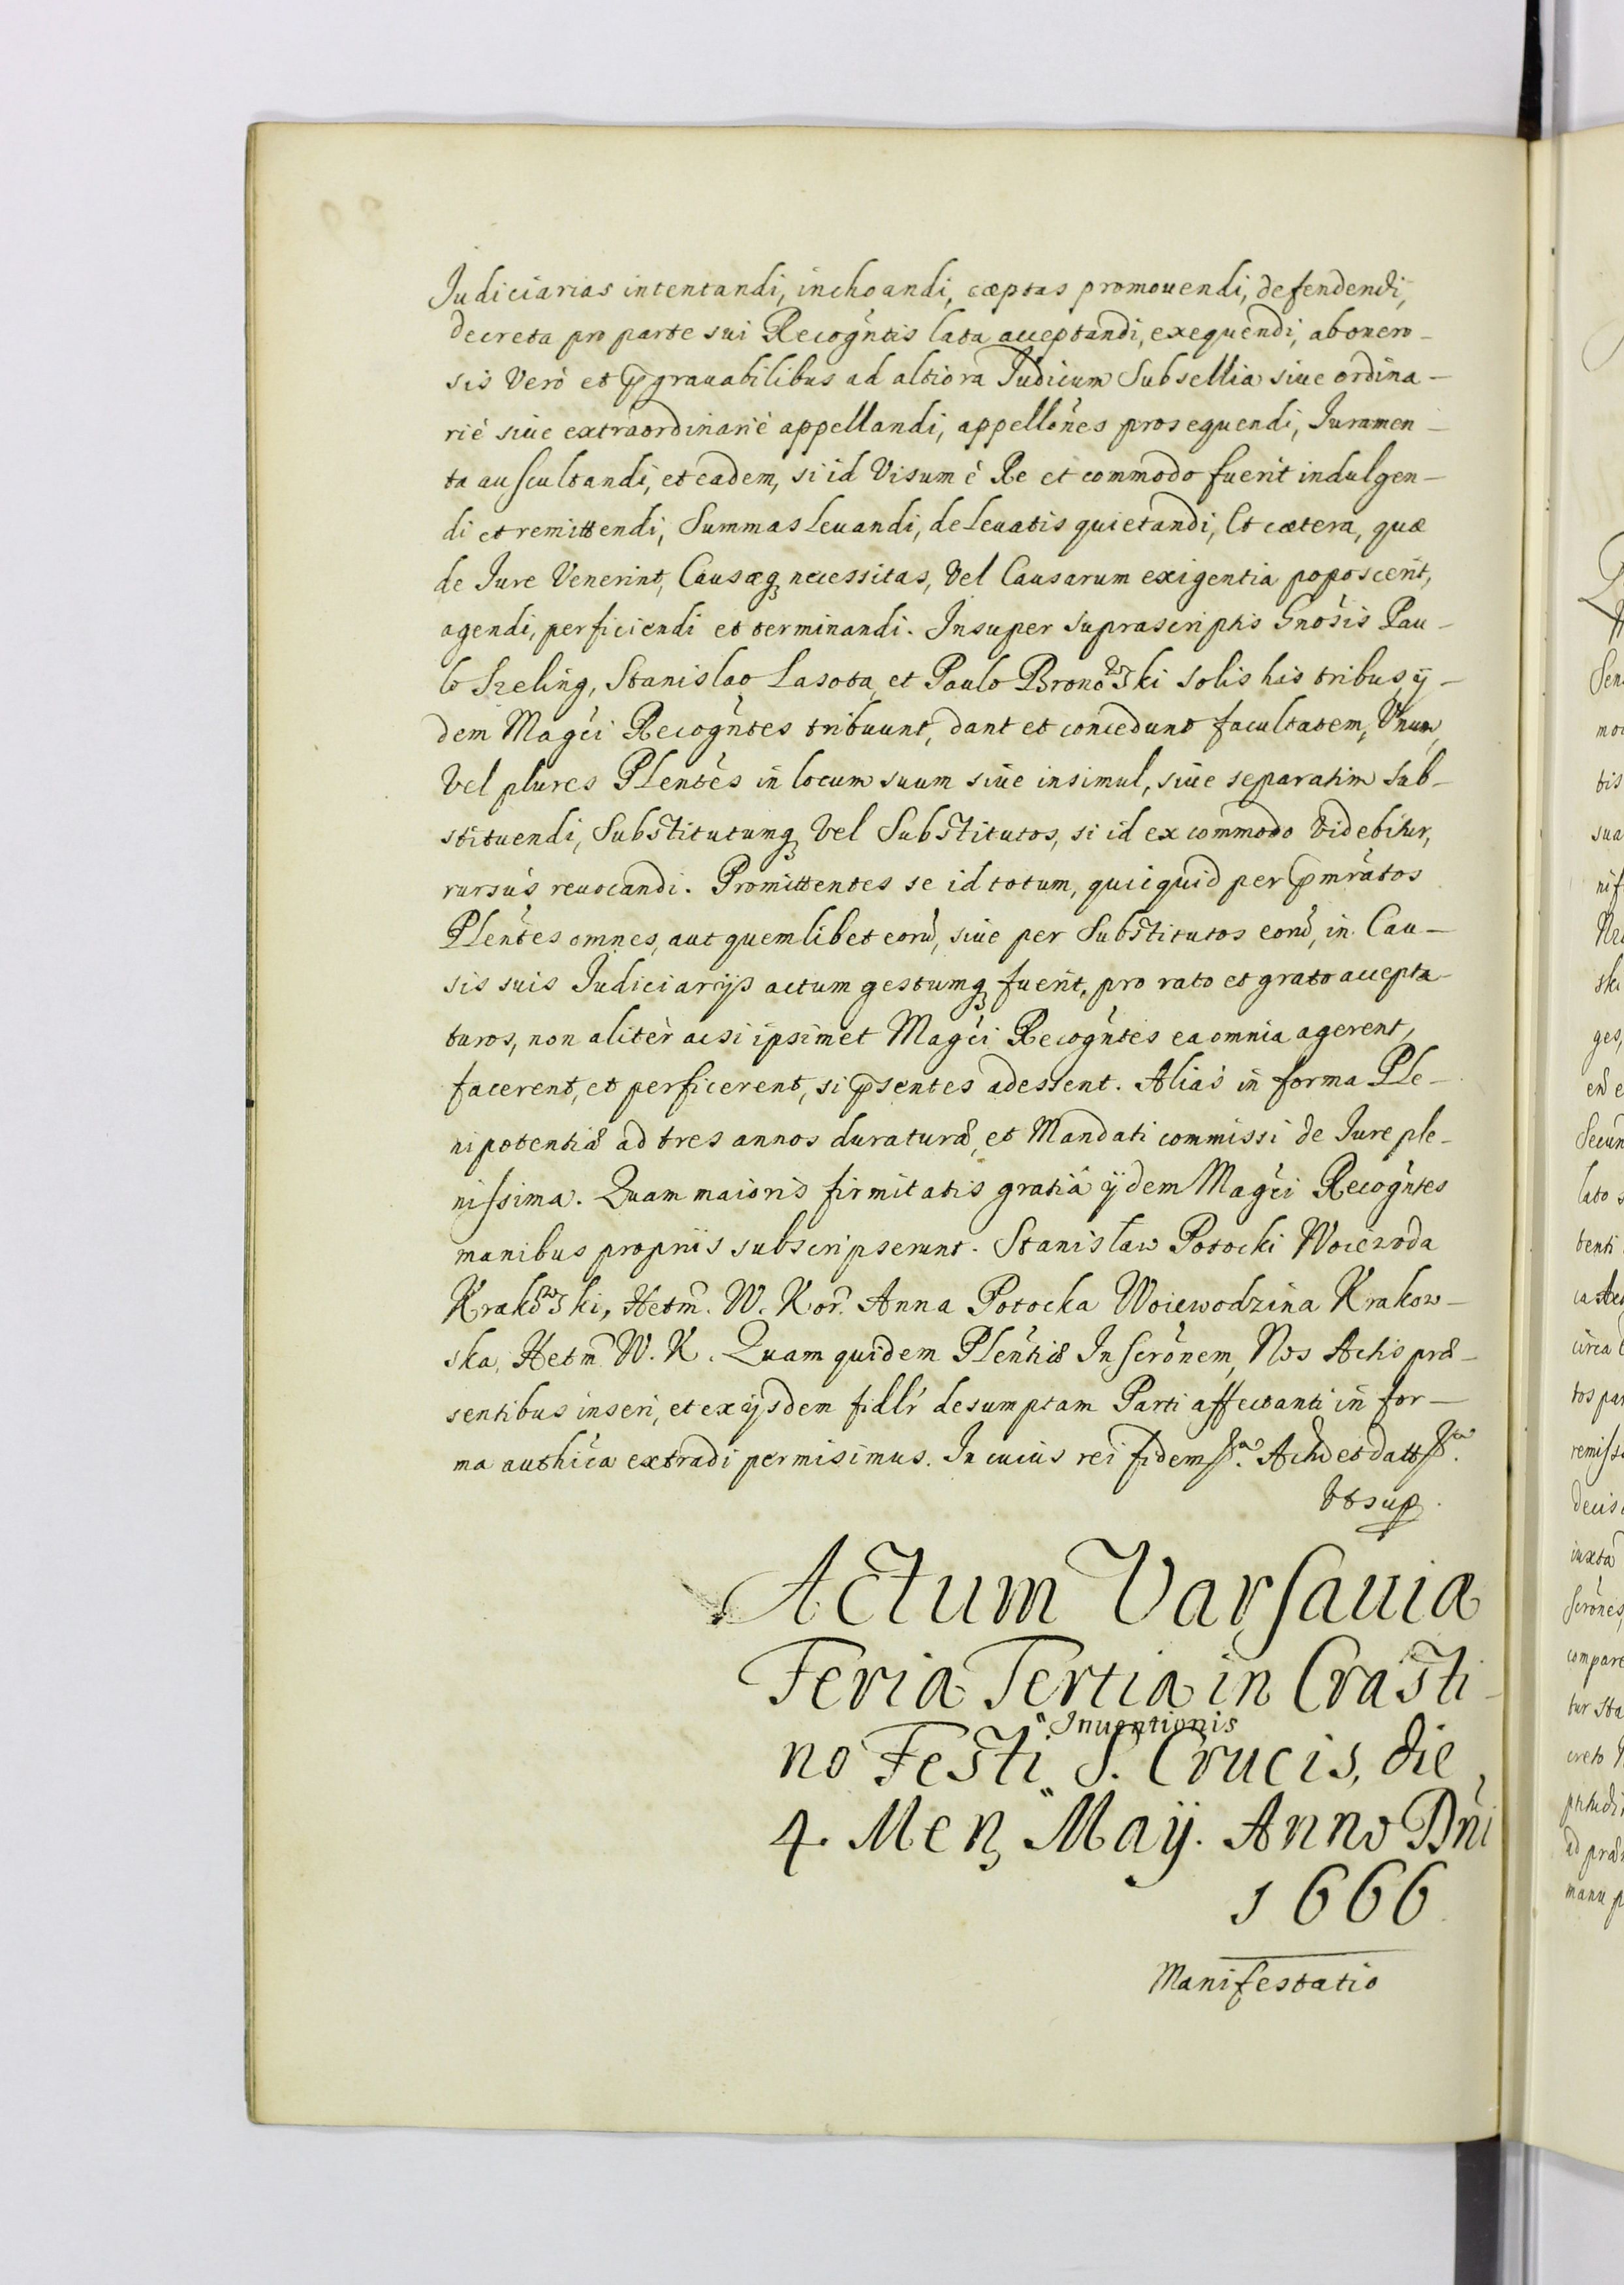 Judiciarias intentandi, inchoandi, cæptas promouendi, defendendi,
decreta pro parte sui Recogńtis lata acceptandi, exequendi, ab onero-
sis Verò et p̄grauabilibus ad altiora Judicum Subsellia siue ordina-
rié siue extraordinarié appellandi, appellónes prosequendi, Juramen-
ta auscultandi, et eadem, si id Visum è Re et commodo fuerit indulgen-
di et remittendi, Summas leuandi, de leuatis quietandi, Et cætera, quæ
de Jure Venerint, Causæq; necessitas, Vel Causarum exigentia poposcerit,
agendi, perficiendi et terminandi. Insuper suprascriptis Gnósis Pau-
lo Szeling, Stanislao Lasota, et Paulo Bronowski solis his tribus, ÿ-
dem Magći Recogńtes tribuunt, dant et concedunt facultatem, Vnum,
Vel plures Plentès in locum suum siue insimul, siue separatim Sub-
stituendi, Substitutumq; Vel Substitutos, si id ex commodo Videbitur,
rursus reuocandi. Promittentes se id totum, quicquid per p̄mrátos
Plentès omnes, aut quemlibet eorū, siue per Substitutos eorū, in Cau-
sis suis Judiciarijs actum gestumq; fuerit, pro rato et grato accepta-
turos, non alitèr acsi ipsimet Magći Recogńtes ea omnia agerent,
facerent, et perficerent, si p̄sentes adessent. Aliàs in forma Ple-
nipotentiæ ad tres annos duraturæ, et Mandati commissi de Jure ple-
nissima. Quam maioris firmitatis gratiâ ÿdem Magći Recogńtes
manibus proprijs subscripserunt. Stanisław Potocki Woiewoda
Krakowski, Hetm̄. W. Kor̄. Anna Potocka Woiewodzina Krakow-
ska, Hetm̄. W. K. Quam quidem Plentiæ Inscrónem, Nos Actis præ-
sentibus inseri, et ex ijsdem fidlŕ desumptam Parti affectanti in for-
ma authića extradi permisimus. In cuius rei fidem p̄. Actū et datt p̄.
Vt sup̄.
Actum Varsauiæ
Feria Tertia in Crasti-
Inuentionis
no Festi S. Crucis, die
4. Menz Maÿ. Anno Dńi
1666
Manifestatio